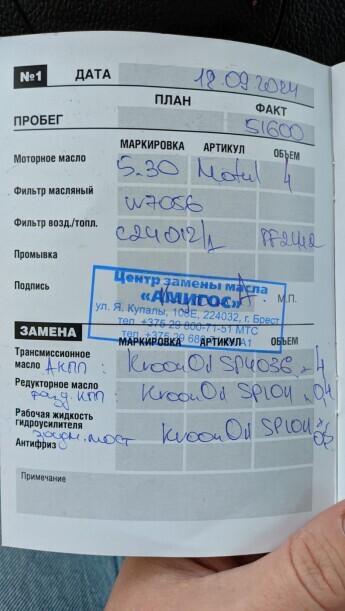 №1 ДАТА 18.09.2024
ПЛАН ФАКТ
ПРОБЕГ 51600
МАРКИРОВКА АРТИКУЛ ОБЪЕМ
Моторное масло 5.30 Motul 4
Фильтр масляный W7056
Фильтр возд./топл. C24012/1
Промывка
Подпись М.П.
Центр замены масла
«АМИГОС»
ул. Я. Купалы, 108Е, 224032, г. Брест
тел. +375 29 800-71-51 МТС
тел. +375 29 А1
ЗАМЕНА МАРКИРОВКА АРТИКУЛ ОБЪЕМ
Трансмиссионное
масло АКПП: Kroon Oil SP4036 - 4
Редукторное масло
разд. КПП: Kroon Oil SP1011 0,4
Рабочая жидкость
гидроусилителя
задн. мост Kroon Oil SP1011
Антифриз
Примечание